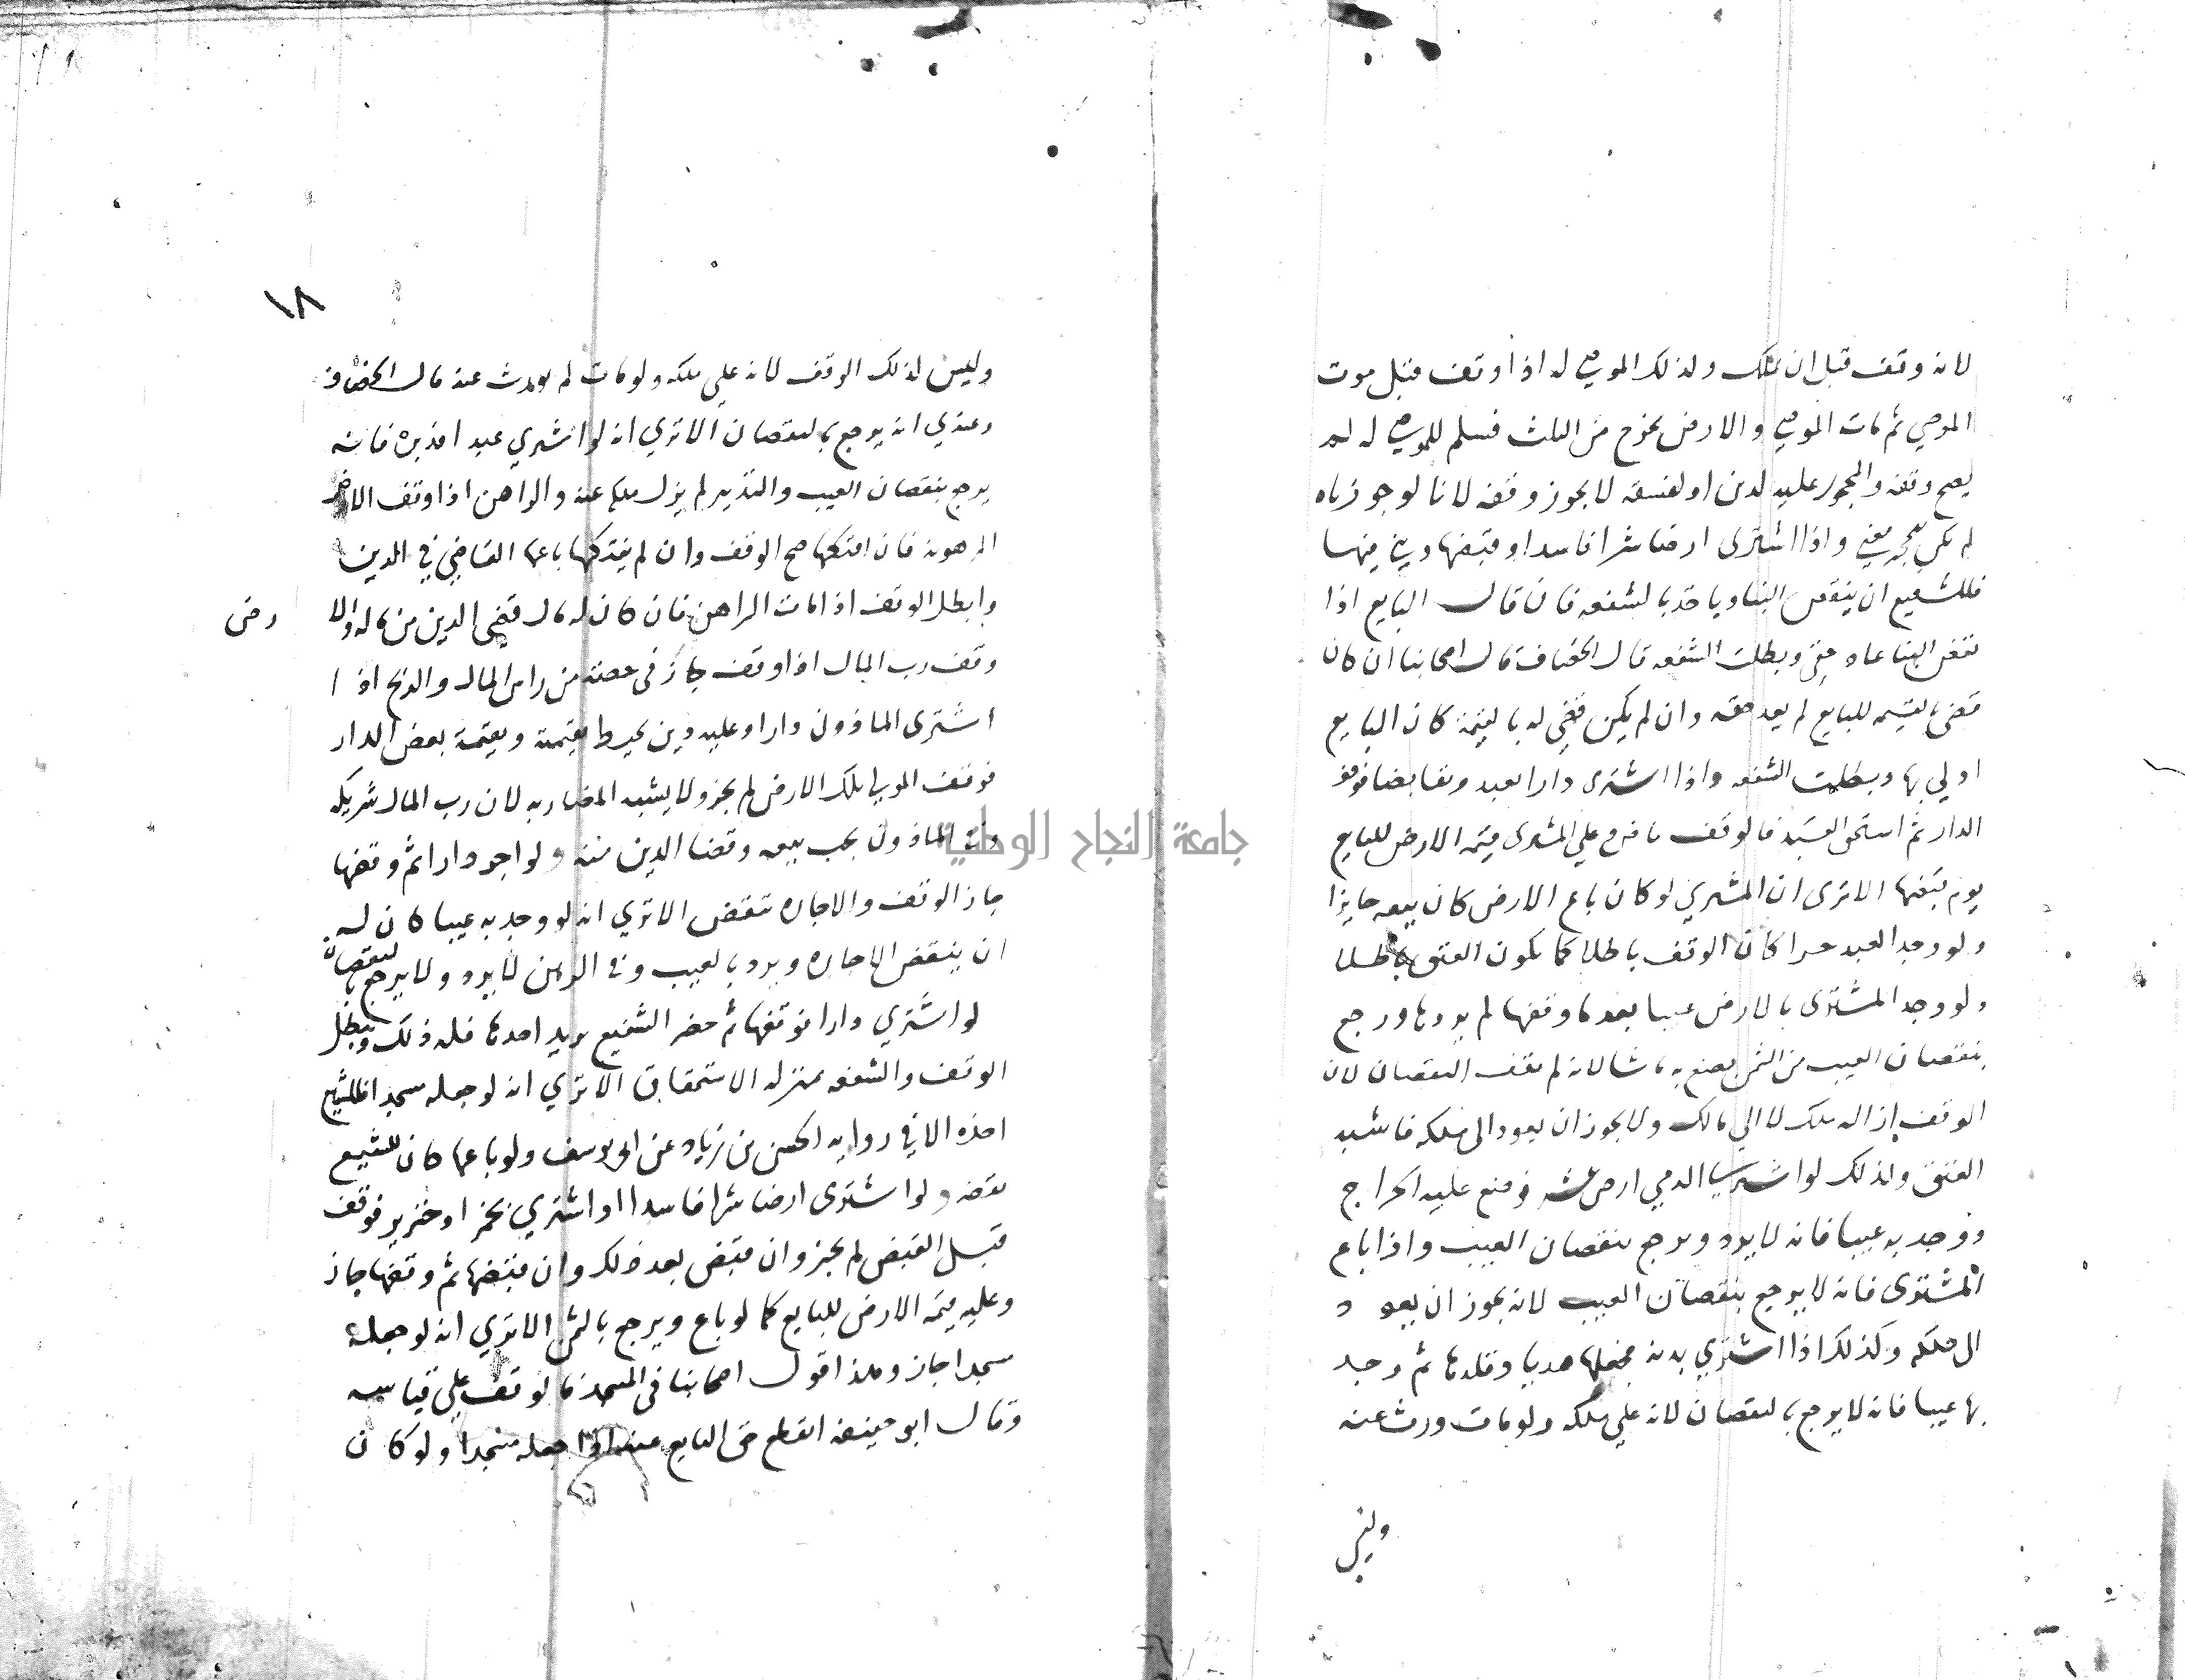 لانه وقف قبل ان يملك وكذلك الموصي له اذا وقف قبل موت
الموصي ثم مات الموصي والارض تخرج من الثلث فسلم للموصي له لم
يصح وقفه والمحجور عليه لدين او لفسقه لا يجوز وقفه لانا لو جوزناه
لم يكن للحجر معني واذا اشترى ارضا شرا فاسدا وقبضها وبني فيها
فللشفيع ان ينقض البنا وياخذ بالشفعه فان قال البايع اذا
نقض البنا عاد حقي وبطلت الشفعه قال الخصاف قال اصحابنا ان كان
قضي بالقيمه للبايع لم يعد حقه وان لم يكن قضي له بالقيمة كان البايع
اولي بها وبطلت الشفعه واذا اشترى دارا بعبد وتقابضا فوقف
الدار ثم استحق العبد فالوقف وعلي المشترى قيمه الارض للبايع
يوم قبضها الا ترى ان المشتري لو كان باع الارض كان بيعه جايزا
ولو وجد العبد حرا كان الوقف باطلا كما يكون العتق باطلا
ولو وجد المشترى بالارض عيبا بعدما وقفها لم يردها ورجع
بنقصان العيب من الثمن يصنع به ما شا لانه لم يقف النقصان لان
الوقف ازاله ملك لا الي مالك ولا يجوز ان يعود الى ملكه فاشبه
العتق وكذلك لو اشتري الذمي ارض عشر فوضع عليه الخراج
ووجد به عيبا فانه لا يرد ويرجع بنقصان العيب واذا باع
المشترى فانه لا يرجع بنقصان العيب لانه يجوز ان يعود
الى ملكه وكذلك اذا اشتري بدنه فجعلها هديا وقلدها ثم وجد
بها عيبا فانه لا يرجع بالنقصان لانه علي ملكه ولو مات ورث عنه
وليس
١٨
وليس كذلك الوقف لانه علي ملكه ولو مات لم يورث عنه قال الخصاف
وعندي انه يرجع بالنقصان الا تري انه لو اشتري عبدا فدبره فانه
يرجع بنقصان العيب والتدبير لم يزل ملكه عنه والراهن اذا وقف الارض
المرهونه فان افتكها صح الوقف وان لم يفتكها باعها القاضي في الدين
وابطل الوقف اذا مات الراهن فان كان له مال قضي الدين من ماله والا
وقف رب المال اذا وقف جاز في حصته من راس المال والربح اذا
اشترى الماذون دارا وعليه دين يحيط بقيمته وبقيمة بعض الدار
فوقف المولي تلك الارض لم يجز ولا يشبه المضاربه لان رب المال شريكه
وفي الماذون يجب بيعه وقضا الدين منه ولو اجر دارا ثم وقفها
جاز الوقف والاجاره تنقض الا تري انه لو وجد به عيبا كان له
ان ينقض الاجاره ويرد بالعيب وفي الرهن لا يرد ولا يرجع بالنقصان
لو اشتري دارا فوقفها ثم حضر الشفيع يريد اخذها فله ذلك ويبطل
الوقف والشفعه بمنزله الاستحقاق الا تري انه لو جعله مسجدا فللشفيع
اخذه الا في روايه الحسن بن زياد عن ابي يوسف ولو باعها كان للشفيع
نقضه ولو اشترى ارضا شرا فاسدا او اشتري بخمر او خنزير فوقف
قبل القبض لم يجز وان قبض بعد ذلك وان قبضها ثم وقفها جاز
وعليه قيمه الارض للبايع كما لو باع ويرجع بالثمن الا تري انه لو جعله
مسجدا جاز وهذا قول اصحابنا في المسجد فالوقف علي قياسه
وقال ابو حنيفه انقطع حق البايع عنه اذا جعله مسجدا ولو كان
جامعة النجاح الوطنية